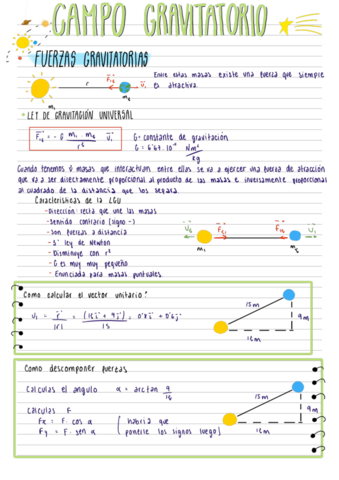 CAMPO GRAVITATORIO
FUERZAS GRAVITATORIAS
Entre estas masas existe una fuerza que siempre
es atractiva.
r
m₁
m₂
- LEY DE GRAVITACIÓN UNIVERSAL
G = constante de gravitación
Cuando tenemos 2 masas que interactúan entre ellas, se va a ejercer una fuerza de atracción
que va a ser directamente proporcional al producto de las masas e inversamente proporcional
al cuadrado de la distancia que los separa.
Características de la LGU
- Dirección: recta que une las masas
- Sentido contrario (signo -)
- Son fuerzas a distancia
- 3ª ley de Newton
- Disminuye con r²
- G es muy muy pequeño
- Enunciada para masas puntuales.
m₁
m₂
Como calcular el vector unitario?
15m
9m
Como descomponer fuerzas
Calculas el angulo
Calculas F
Fx = F · cos α
Fy = F · sen α
( habría que
ponerle los signos luego )
15m
9m